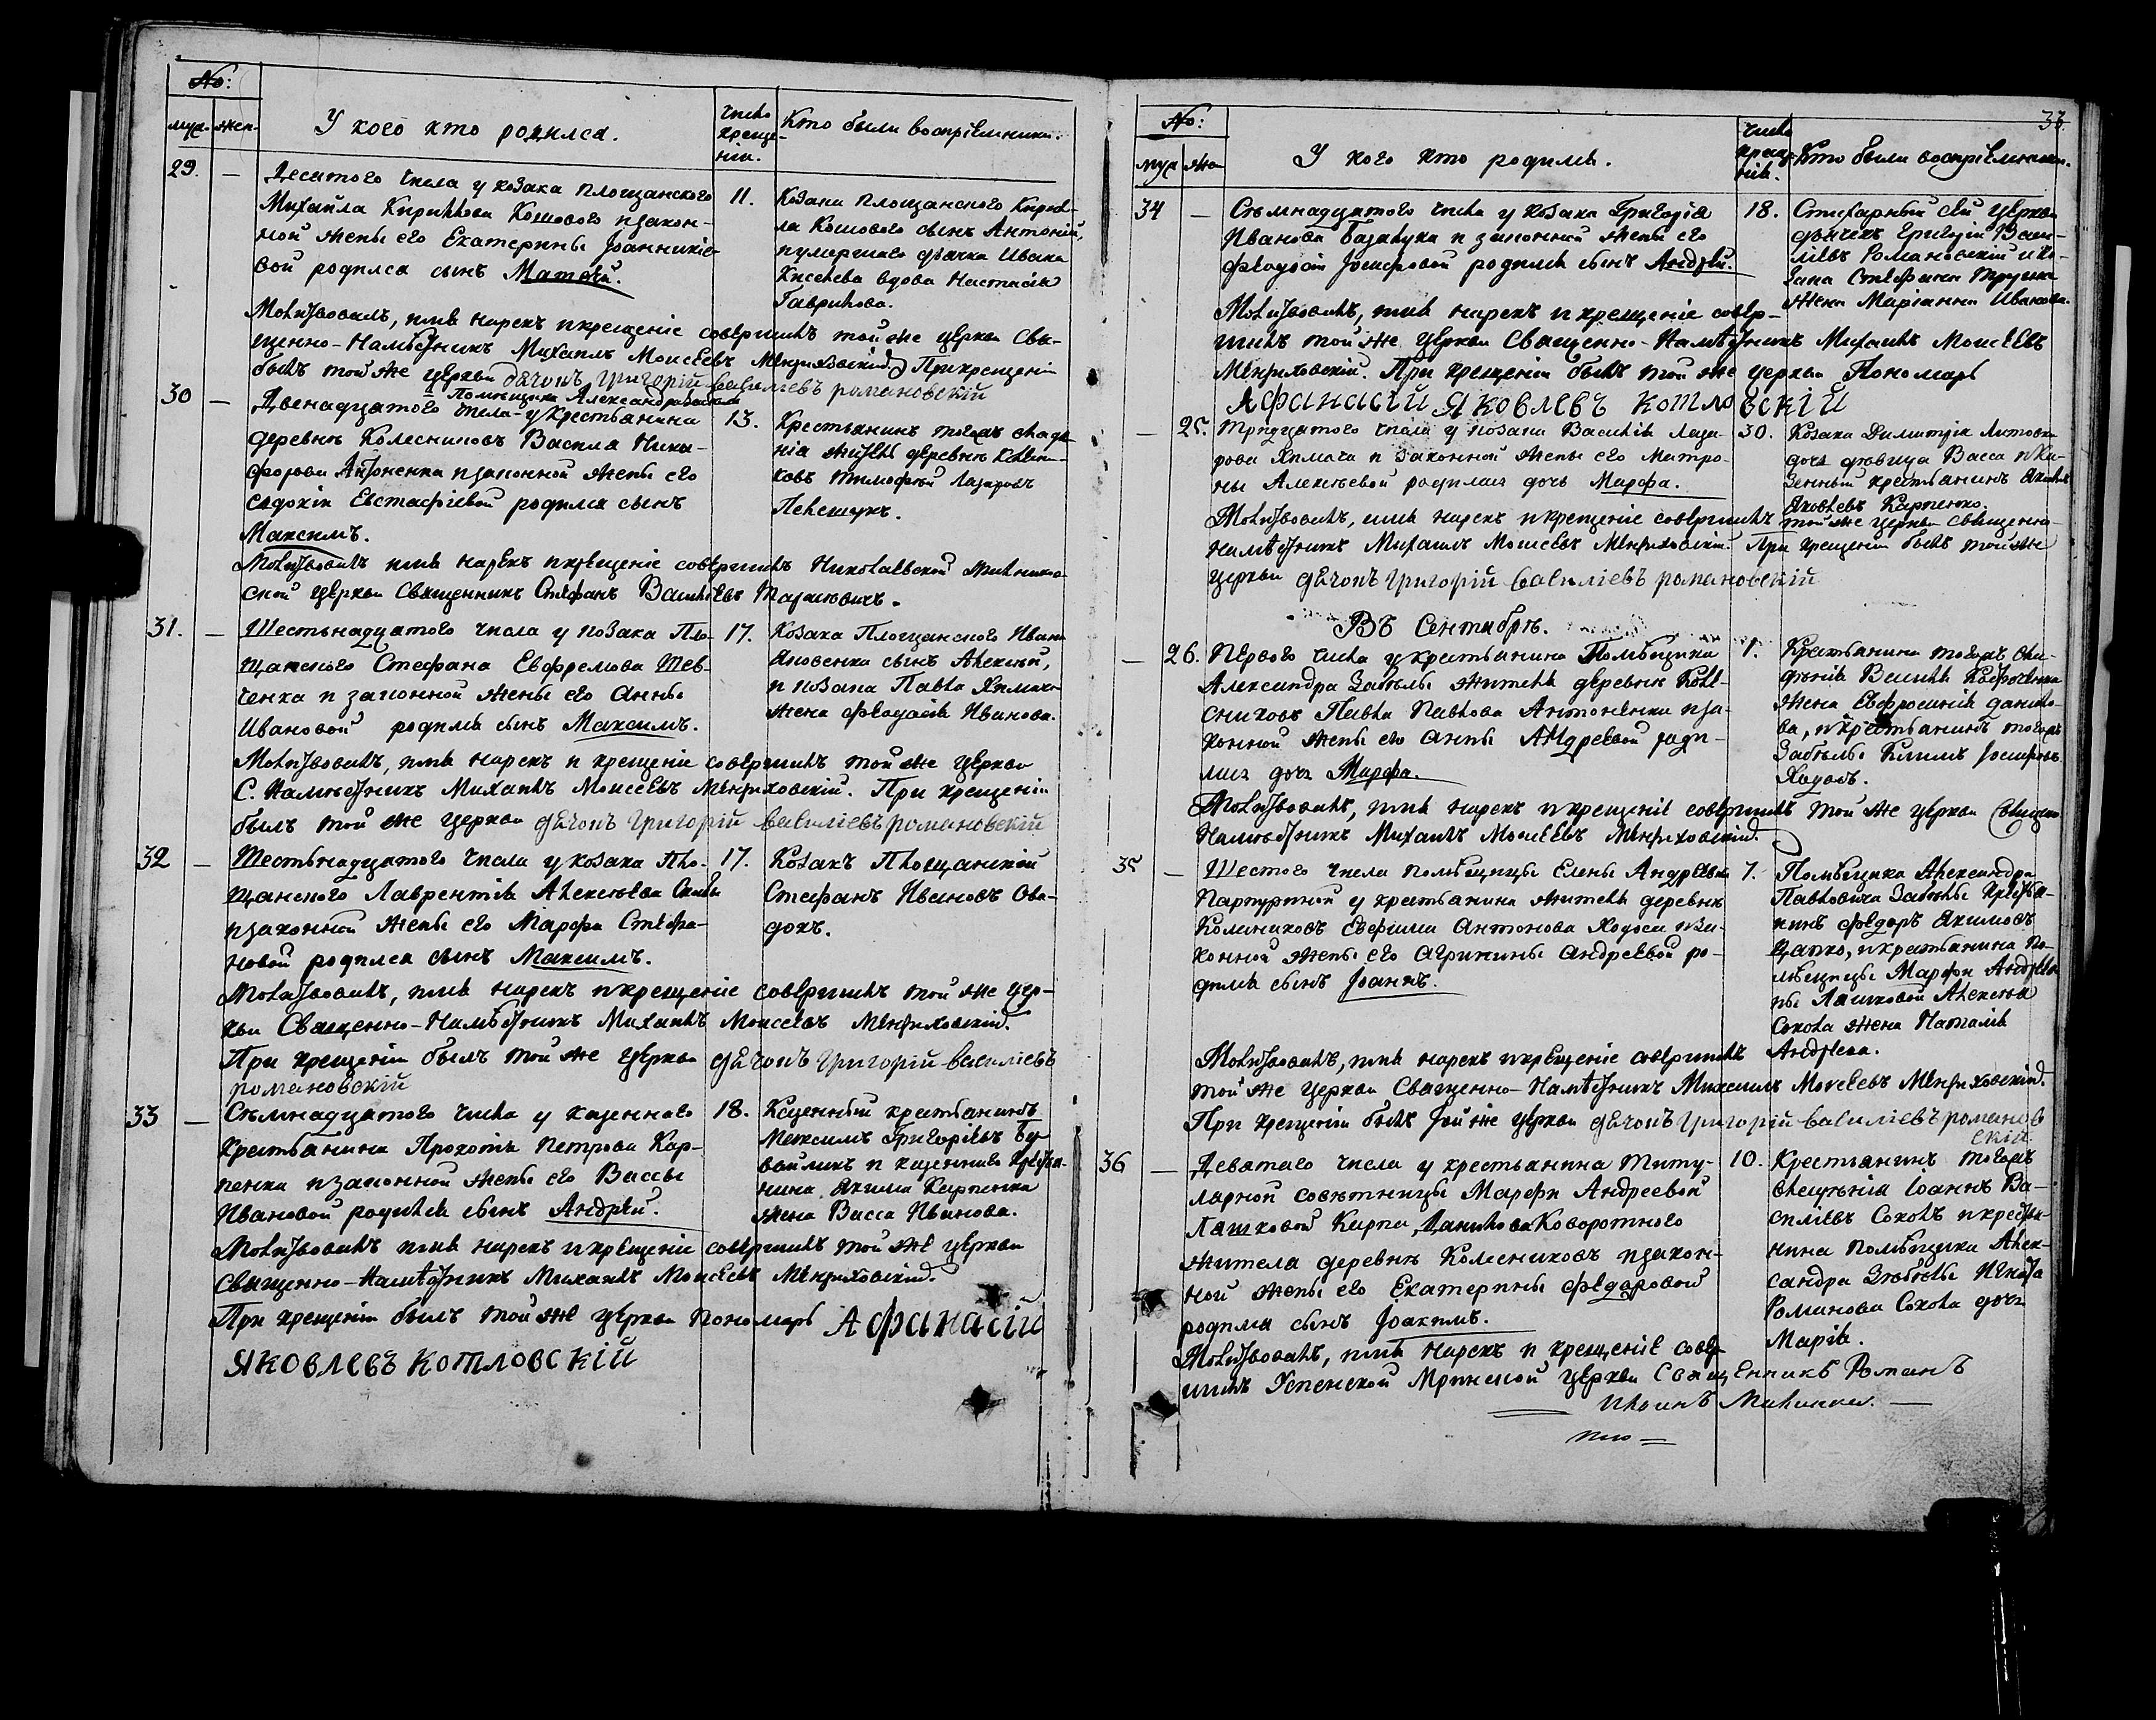 №:
муж. жен.
У кого кто родился.
Число
креще-
нія.
Кто были воспріемники.
29. —
Десятого числа у козака площанского
Михайла Кирилова Кошового изакон-
ной жены его Екатерины Іоанникіе-
вой родился сынъ Матѳей.
11.
Козака площанского Кирил-
ла Кошового сынъ Антоній,
иумершаго дьячка Ивана
Киселева вдова Настасія
Гаврилова.
Молитвовалъ, имя нарекъ икрещеніе совершилъ той же церкви Свя-
щенно-Намѣстникъ Михаилъ Моисеевъ При крещеніи
былъ той же церкви дѣчокъ григорій василіевъ романовскій
30 —
Помѣщика Александра Забѣлы
Двенадцатого числа у крестьянина
деревнѣ Колесниковъ Василя Ники-
форова Антоненка изаконной жены его
Евдокіи Евстафіевой родился сынъ
Максимъ.
13.
Крестьянинъ тогожъ владе-
нія житель деревнѣ Колесни-
ковъ Тимофей Лазаровъ
Молитвовалъ имя нарекъ икрещеніе совершилъ Николаевской
ской церкви Священникъ Стефанъ Васильевъ Тарасовичъ.
31. —
Шестьнадцатого числа у козака Пло-
щанского Стефана Евфремова Шев-
ченка и законной жены его Анны
Ивановой родился сынъ Максимъ.
17.
Козака Площанского Ивана
Яковенка сынъ Алексѣй,
и козака Павла Химача
жена Феодосія Иванова.
Молитвовалъ, имя нарекъ и крещеніе совершилъ той же церкви
С. Намѣстникъ Михаилъ Моисеевъ При крещеніи
былъ той же церкви дѣчокъ григорій василіевъ романовскій
32 —
Шестьнадцатого числа у козака Пло-
щанского Лаврентія Алексѣева
изаконной жены его Марфы Стефа-
новой родился сынъ Максимъ.
17.
Козакъ Площанскій
Стефанъ Ивановъ Ова-
докъ.
Молитвовалъ, имя нарекъ икрещеніе совершилъ той же цер-
кви Священно-Намѣстникъ Михаилъ Моисеевъ
При крещеніи былъ той же церкви дѣчокъ григорій василіевъ
романовскій
33 —
Съмнадцатого числа у казенного
крестьянина Прокопія Петрова Кар-
пенка изаконной жены его Вассы
Ивановой родился сынъ Андрей.
18.
Казенный крестьянинъ
Максимъ Григоріевъ Бу-
вайликъ и казенного крестья-
нина Якима Карпенка
жена Васса Иванова.
Молитвовалъ имя нарекъ икрещеніе совершилъ той же церкви
Священно-Намѣстникъ Михаилъ Моисеевъ
При крещеніи былъ той же церкви пономарь Афанасій
Яковлевъ Котловскій
33.
№:
муж жен
У кого кто родился.
Числа
креще-
нія.
Кто были воспріемники.
34 —
Съмнадцатого числа у козака Григорія
Иванова и законной жены его
Феодосіи Іосифовой родился сынъ Андрей.
18.
Стихарный сей церкви
дьячекъ Григорій Васи-
ліевъ Романовскій и ко-
зака Стефана
жена Маріанна Иванова.
Молитвовалъ, имя нарекъ икрещеніе совер-
шилъ той же церкви Священно-Намѣстникъ Михаилъ Моисеевъ
При крещеніи былъ той же церкви Пономарь
Афанасій Яковлевъ Котловскій
— 25.
Тридцатого числа у козака Василія Лаза-
рова Химача и законной жены его Матро-
ны Алексѣевой родилась дочь Марфа.
30.
Козака Димитрія Литовки
дочь дѣвица Васса ика-
зенный крестьянинъ Якимъ
Яковлевъ Карпенко.
Молитвовалъ, имя нарекъ икрещеніе совершилъ той же церкви священно-
намѣстникъ Михаилъ Моисеевъ При крещеніи былъ той же
церкви дѣчокъ григорій василіевъ романовскій
Въ Сентябрѣ.
— 26.
Первого числа укрестьянина Помѣщика
Александра Забѣлы жителя деревнѣ Коле-
сниковъ Павла Павлова Антоненки иза-
конной жены его Анны Андреевой роди-
лась дочь Марфа.
1.
Крестьянина тогожъ вла-
дѣнія Василія
жена Евфросинія Данило-
ва, икрестьянинъ тогожъ
Забѣлы Климъ Іосифовъ
Ходосъ.
Молитвовалъ, имя нарекъ икрещеніе совершилъ той же церкви Священно
Намѣстникъ Михаилъ Моисеевъ
35 —
Шестого числа помѣщицы Елены Андреевны
Парпуриной у крестьянина жителя деревнѣ
Колѣниковъ Евфима Антонова Ходоса иза-
конной жены его Агрипины Андреевой ро-
дился сынъ Іоаннъ.
7.
Помѣщика Александра
Павловича Забѣлы крестья-
нинъ Федоръ Якимовъ
Цапко, икрестьянина по-
мѣщицы Марфы Андреев-
ны Лашковой Алексѣя
Сокола жена Наталія
Андреева.
Молитвовалъ, имя нарекъ икрещеніе совершилъ
той же церкви Священно-Намѣстникъ Михаилъ Моисеевъ
При крещеніи былъ той же церкви дѣчокъ григорій василіевъ романов
скій.
36 —
Девятаго числа у крестьянина титу-
лярной совѣтницы Марфы Андреевой
Лашковой Карпа Данилова Коворотного
жителя деревнѣ Колесниковъ изакон-
ной жены его Екатерины Федоровой
родился сынъ Іоакимъ.
10.
Крестьянинъ тогожъ
владѣнія Іоаннъ Ва-
силіевъ Соколъ икрестья-
нина помѣщика Алек-
сандра Забѣлы Игната
Романова Сокола дочь
Марія.
Молитвовалъ, имя нарекъ и крещеніе совер-
шилъ Успенской Мринской церкви Священникъ Романъ